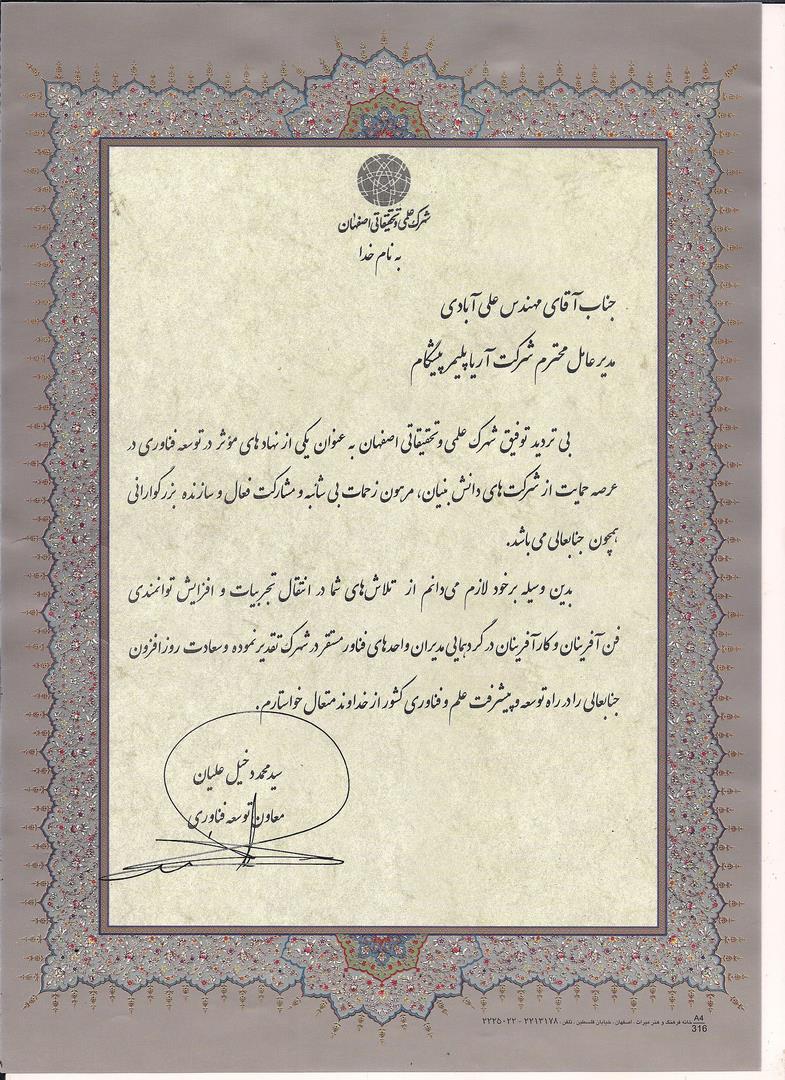 شهرک علمی و تحقیقاتی اصفهان
به نام خدا
جناب آقای مهندس علی آبادی
مدیر عامل محترم شرکت آریا پلیمر پیشگام
بی تردید توفیق شهرک علمی و تحقیقاتی اصفهان به عنوان یکی از نهادهای مؤثر در توسعه فناوری در
عرصه حمایت از شرکت‌های دانش بنیان، مرهون زحمات بی شائبه و مشارکت فعال و سازنده بزرگوارانی
همچون جنابعالی می باشد.
بدین وسیله برخود لازم می‌دانم از تلاش‌های شما در انتقال تجربیات و افزایش توانمندی
فن آفرینان و کارآفرینان در گردهمایی مدیران واحدهای فناور مستقر در شهرک تقدیر نموده و سعادت روزافزون
جنابعالی را در راه توسعه و پیشرفت علم و فناوری کشور از خداوند متعال خواستارم.
سید محمد دخیل علیان
معاون توسعه فناوری
A4
316
خانه فرهنگ و هنر میراث ، اصفهان ، خیابان فلسطین ، تلفن : ۲۲۱۳۱۷۸ - ۲۲۲۵۰۲۲